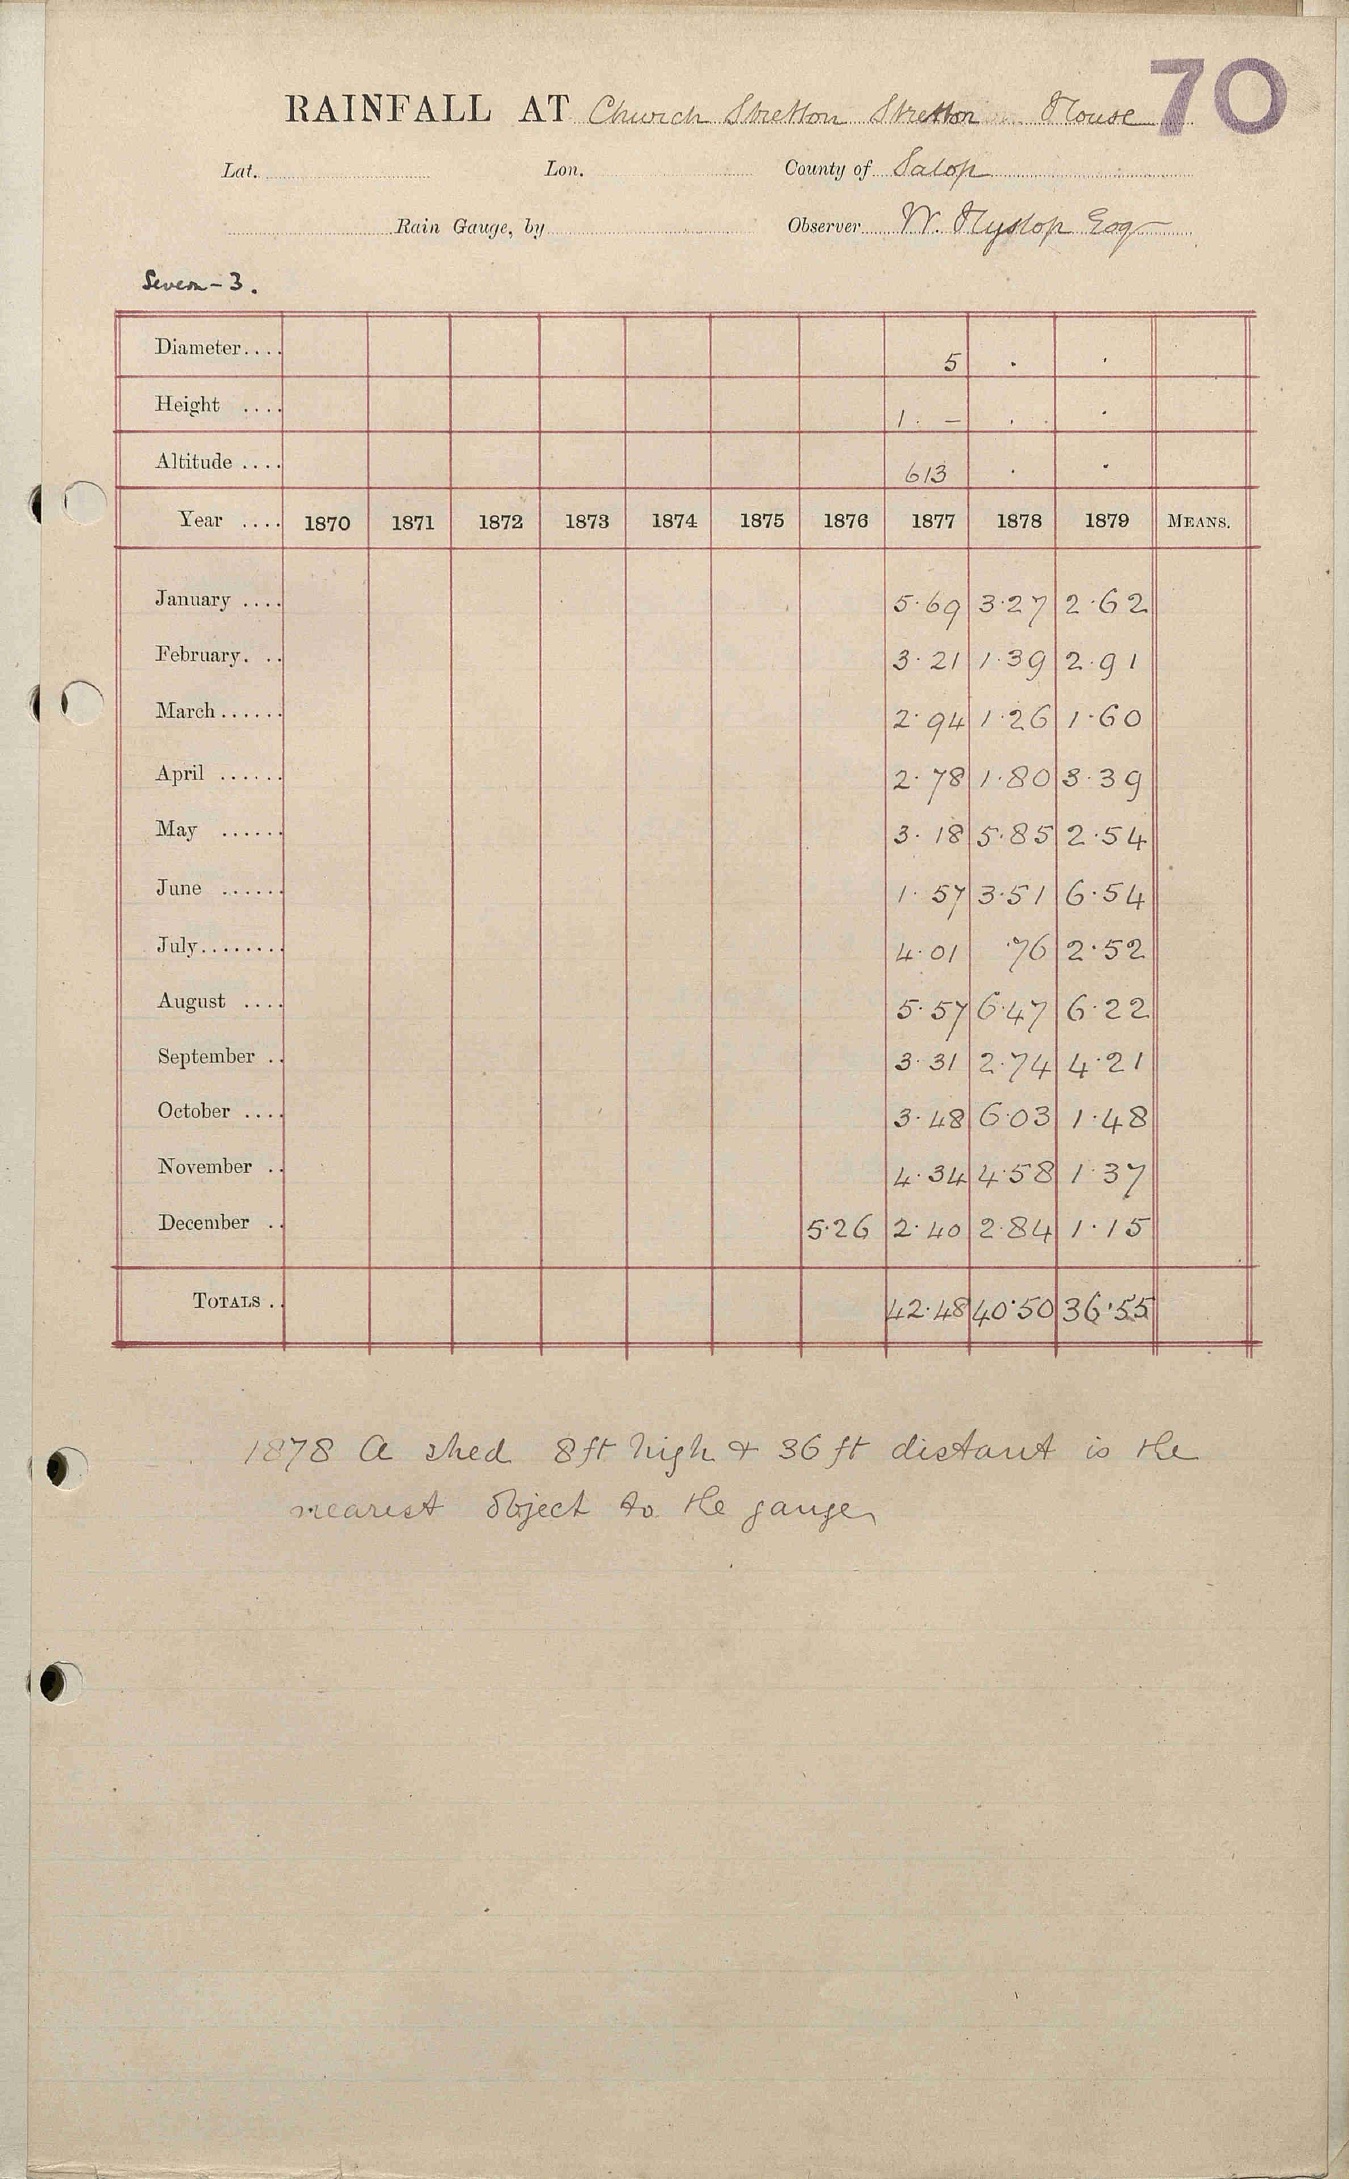 70
RAINFALL AT Church Stretton Stretton House
Lat. Lon. County of Salop
Rain Gauge, by Observer W. Hyslop Esq
Severn - 3.
Diameter.... 5 . .
Height .... 1. – . .
Altitude .... 613 . .
Year .... 1870 1871 1872 1873 1874 1875 1876 1877 1878 1879 MEANS.
January .... 5.69 3.27 2.62
February. .. 3.21 1.39 2.91
March...... 2.94 1.26 1.60
April ...... 2.78 1.80 3.39
May ...... 3.18 5.85 2.54
June ...... 1.57 3.51 6.54
July........ 4.01 .76 2.52
August .... 5.57 6.47 6.22
September .. 3.31 2.74 4.21
October .... 3.48 6.03 1.48
November .. 4.34 4.58 1.37
December .. 5.26 2.40 2.84 1.15
TOTALS .. 42.48 40.50 36.55
1878 A shed 8ft high & 36 ft distant is the
nearest object to the gauge